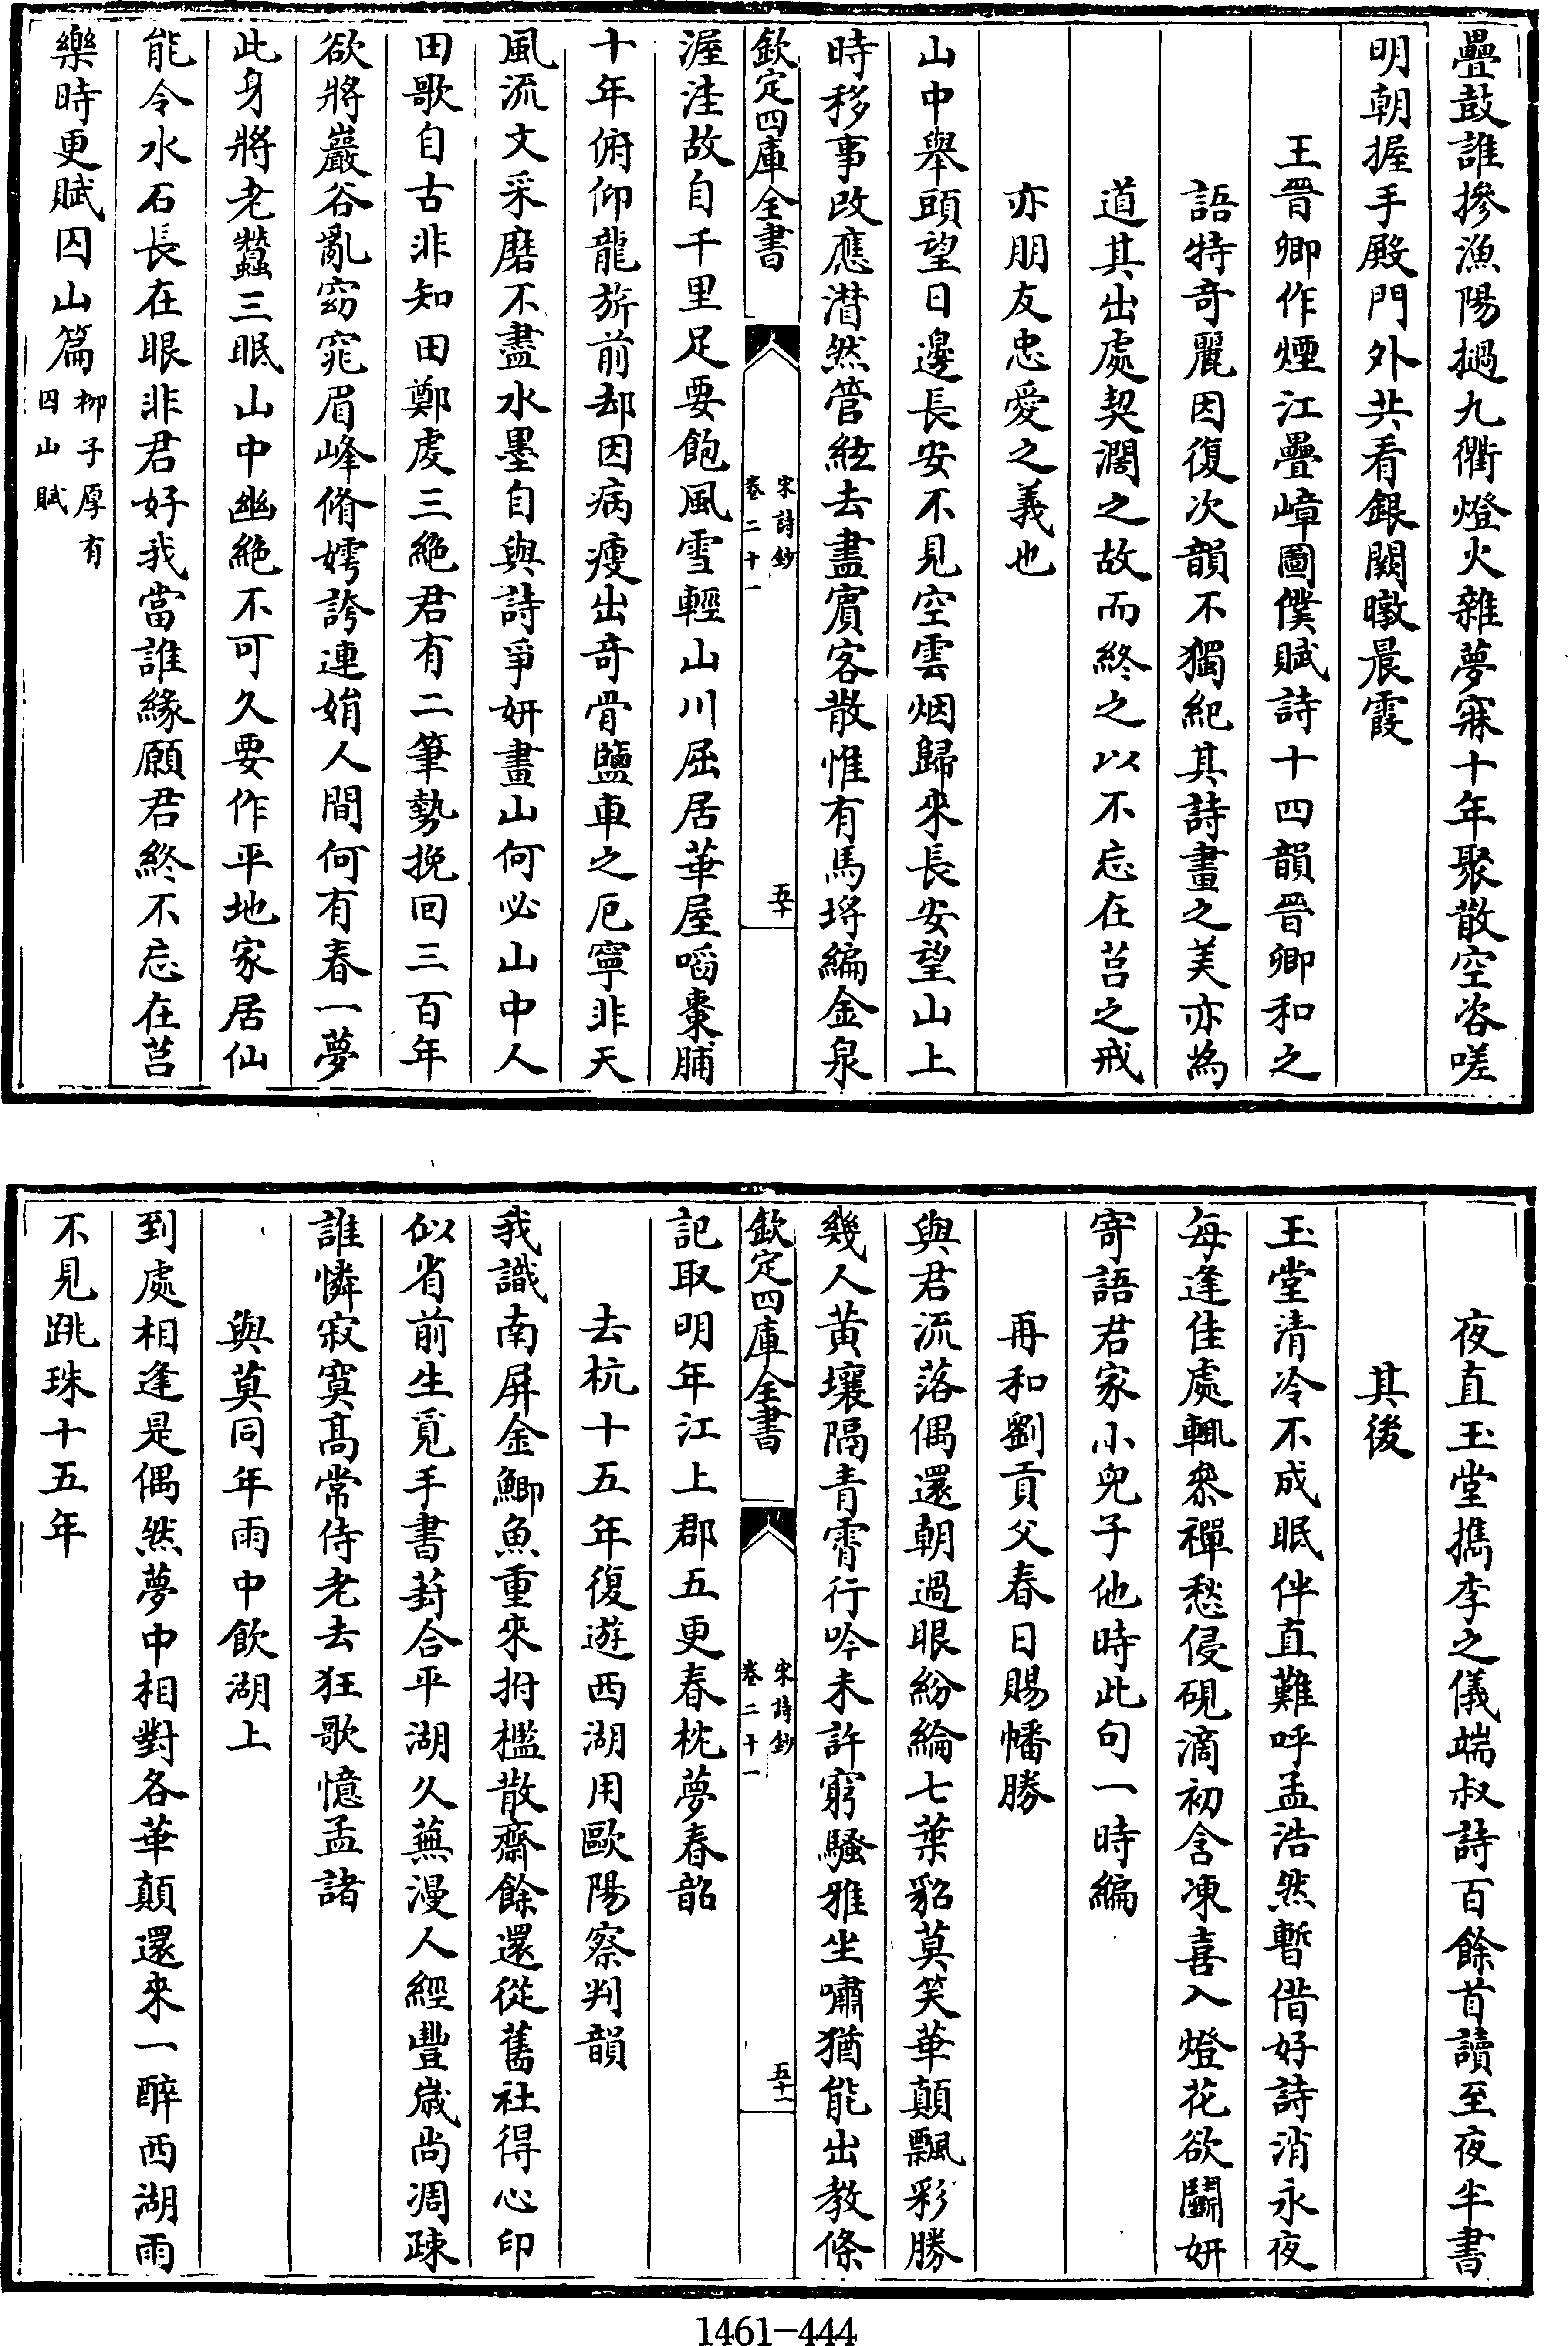 疊鼓誰摻漁陽撾九衢燈火雜夢寐十年聚散空咨嗟
明朝握手殿門外共看銀闕暾晨霞
王晉卿作煙江疊嶂圖僕賦詩十四韻晉卿和之
語特奇麗因復次韻不獨紀其詩畫之美亦爲
道其出處契濶之故而終之以不忘在莒之戒
亦朋友忠愛之義也
山中舉頭望日邊長安不見空雲烟歸來長安望山上
時移事改應潸然管絃去盡賓客散惟有馬埒編金泉
欽定四庫全書
宋詩鈔
卷二十一
五十
渥洼故自千里足要飽風雪輕山川屈居華屋啗棗脯
十年俯仰龍旂前却因病瘦出奇骨鹽車之厄寧非天
風流文采磨不盡水墨自與詩爭妍畫山何必山中人
田歌自古非知田鄭虔三絶君有二筆勢挽回三百年
欲將巖谷亂窈窕眉峰脩嫮誇連娟人間何有春一夢
此身將老蠶三眠山中幽絶不可久要作平地家居仙
能令水石長在眼非君好我當誰緣願君終不忘在莒
樂時更賦囚山篇柳子厚有
囚山賦
夜直玉堂攜李之儀端叔詩百餘首讀至夜半書
其後
玉堂清冷不成眠伴直難呼孟浩然暫借好詩消永夜
每逢佳處輒參禪愁侵硯滴初含凍喜入燈花欲鬭妍
寄語君家小兒子他時此句一時編
再和劉貢父春日賜幡勝
與君流落偶還朝過眼紛綸七葉貂莫笑華顛飄彩勝
幾人黄壤隔青霄行吟未許窮騷雅坐嘯猶能出教條
欽定四庫全書
宋詩鈔
卷二十一
五十一
記取明年江上郡五更春枕夢春韶
去杭十五年復遊西湖用歐陽察判韻
我識南屏金鯽魚重來拊檻散齋餘還從舊社得心印
似省前生覓手書葑合平湖久蕪漫人經豐歲尚凋疎
誰憐寂寞高常侍老去狂歌憶孟諸
與莫同年雨中飲湖上
到處相逢是偶然夢中相對各華顛還來一醉西湖雨
不見跳珠十五年
1461-444